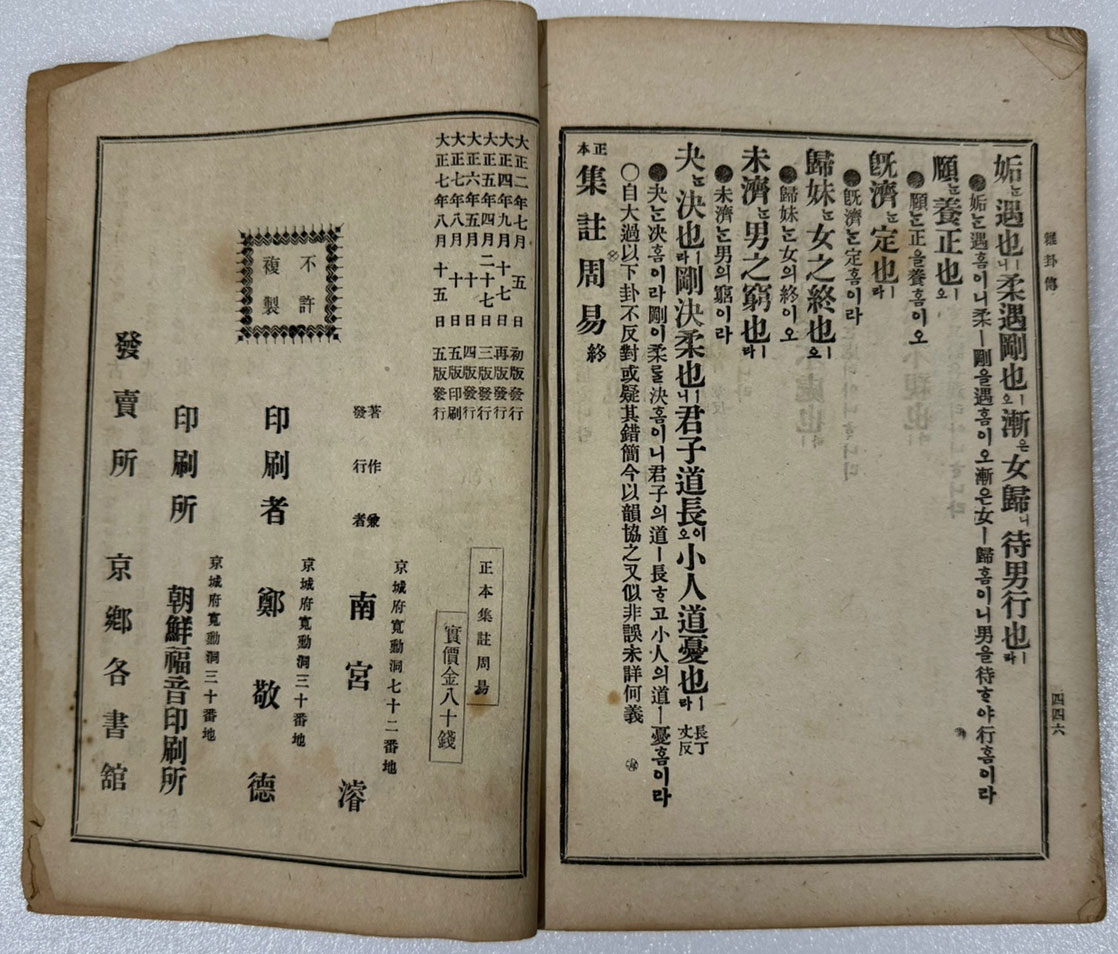 雜卦傳
四四六
姤는遇也ㅣ니柔遇剛也ㅣ오漸은女歸ㅣ니待男行也ㅣ라
姤는遇홈이니柔ㅣ剛을遇홈이오漸은女ㅣ歸홈이니男을待ᄒᆞ야行홈이라
頤는養正也ㅣ오
頤는正을養홈이오
旣濟는定也ㅣ라
旣濟는定홈이라
歸妹는女之終也ㅣ오
歸妹는女의終이오
未濟는男之窮也ㅣ라
未濟는男의窮이라
夬는決也ㅣ라剛決柔也ㅣ니君子道長이오小人道憂也ㅣ라 長丁丈反
夬는決홈이라剛이柔를決홈이니君子의道ㅣ長ᄒᆞ고小人의道ㅣ憂홈이라
○自大過以下卦不反對或疑其錯簡今以韻協之又似非誤未詳何義
正本集註周易 終
大正二年七月五日 初版發行
大正四年九月十七日 再版發行
大正五年四月二十七日 三版發行
大正六年五月十日 四版發行
大正七年八月十日 五版印刷
大正七年八月十五日 五版發行
不許複製
正本集註周易
實價金八十錢
京城府寬勳洞七十二番地
著作兼發行者 南宮濬
京城府寬勳洞三十番地
印刷者 鄭敬德
京城府寬勳洞三十番地
印刷所 朝鮮福音印刷所
發賣所 京鄉各書館